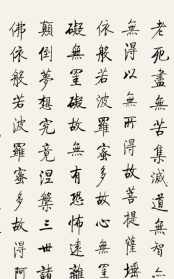 老死盡無苦集滅道無智亦
無得以無所得故菩提薩埵
依般若波羅蜜多故心無罣
礙無罣礙故無有恐怖遠離
顛倒夢想究竟涅槃三世諸
佛依般若波羅蜜多故得阿